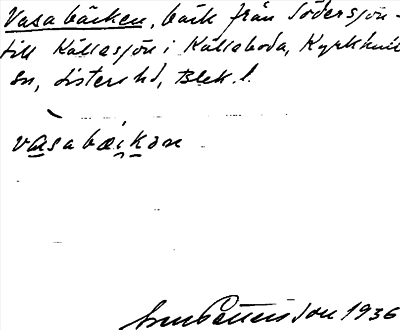 Vasabäcken, bäck från Södersjön-
till Källasjön i Källeboda, Kyrkhult
Sn, Listers hd, Blek. l.
vasabæikən
Pettersson 1936